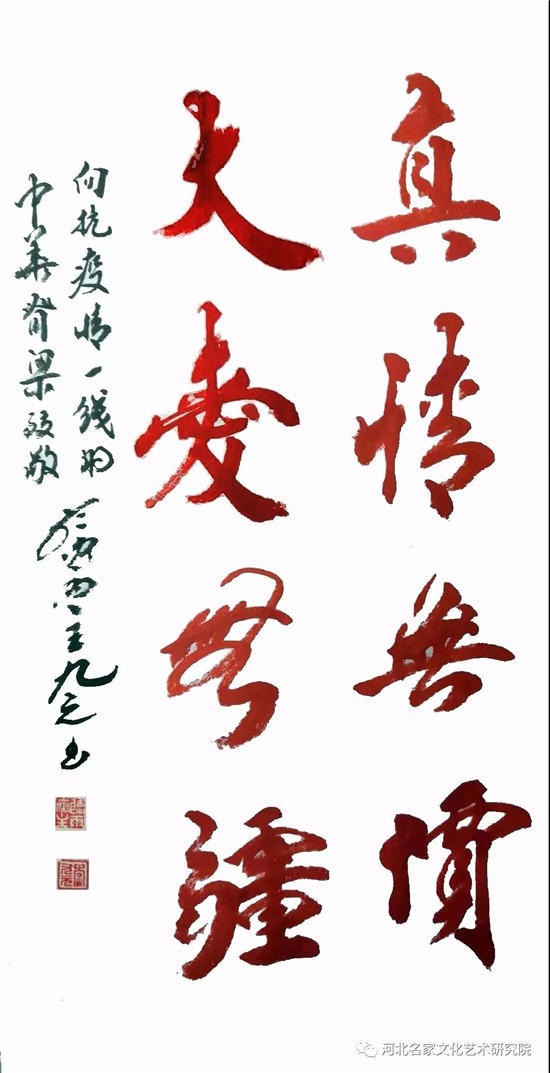 真情無價
大愛無疆
向抗疫情一线的
中華脊梁致敬
王九元书
河北名家文化艺术研究院